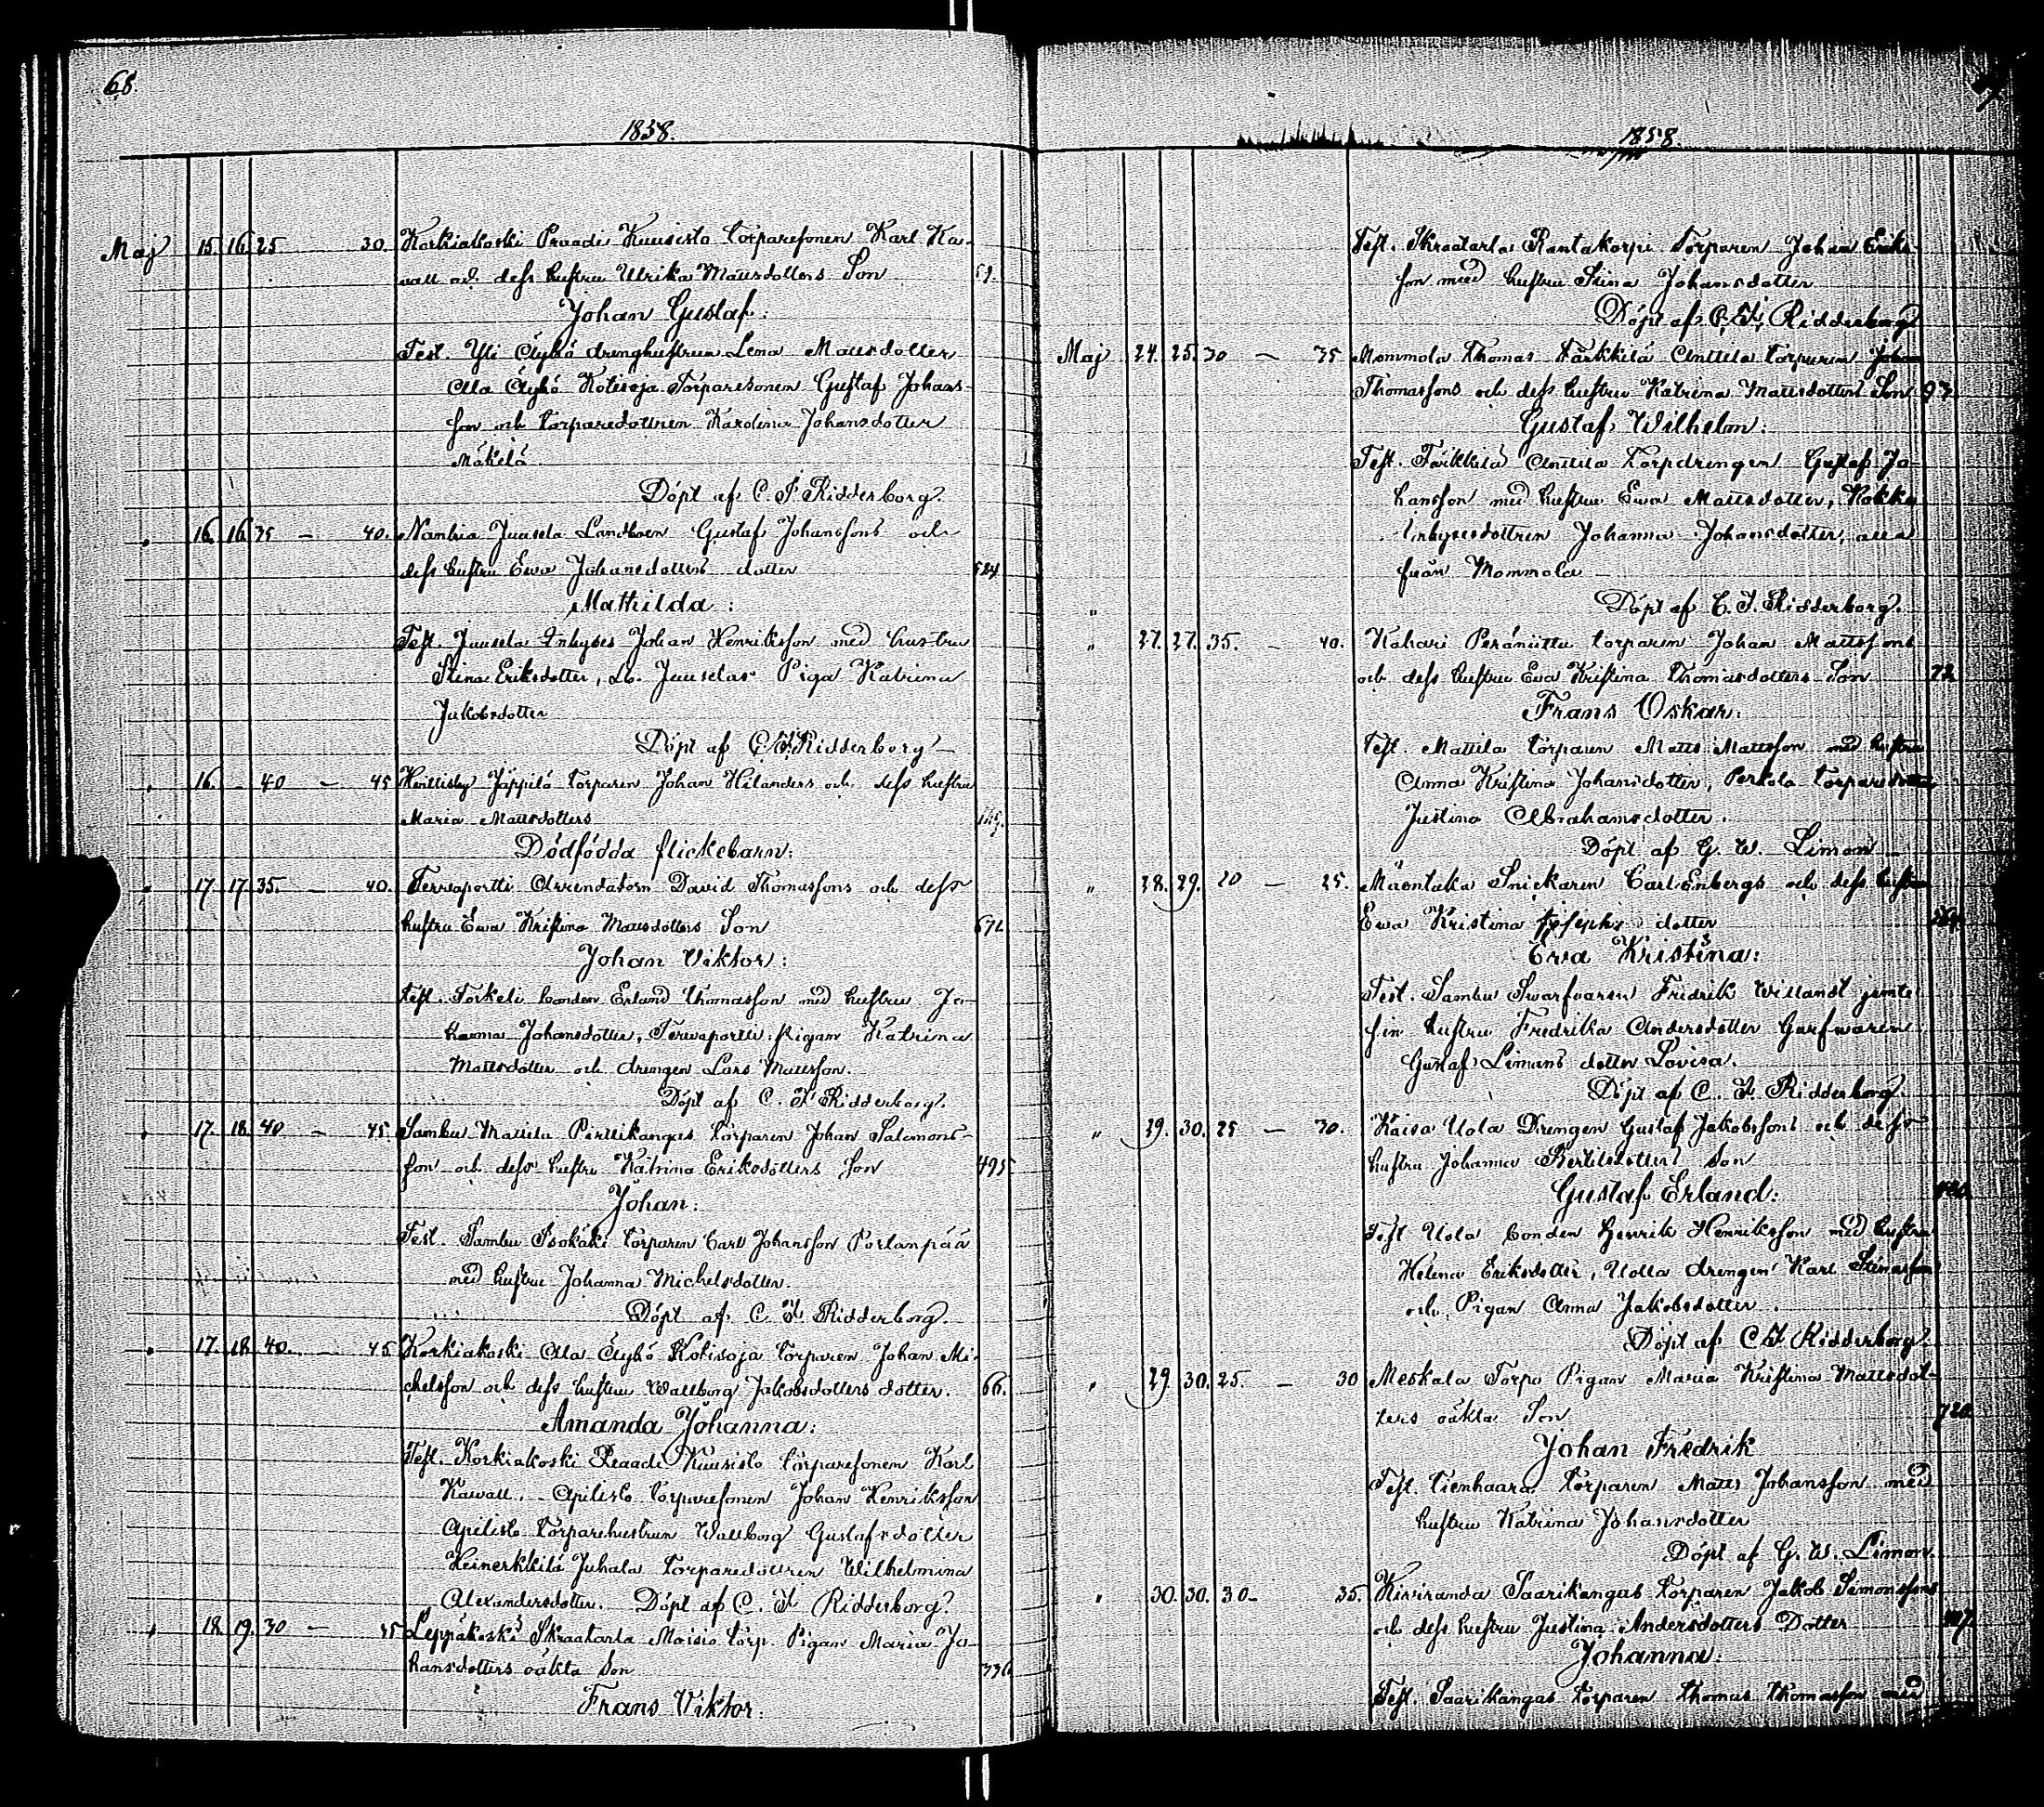 68.
1858.
Maj 15. 16. 25 30. Korkiakoski Praadi Kuusisto torparesonen Karl Ka-
wall och dess hustru Ulrika Mattsdotters Son 59.
Johan Gustaf:
Test. Yli Äyhö drenghustrun Lena Mattsdotter
Ala Äyhö Kotisoja Torparesonen Gustaf Johans-
son och torparedottren Karolina Johansdotter
Mäkelä.
Döpt af C. F. Ridderborg.
" 16. 16. 35 — 40. Nambia Juusela Landboen Gustaf Johanssons och
dess hustru Ewa Johansdotters dotter 524
Mathilda:
Test. Juusela Inhyses Johan Henriksson med hustru
Stina Eriksdotter, Lb. Juuselas Piga Katrina
Jakobsdotter
Döpt af C. F. Ridderborg —
" 16. - 40 — 45 Hentisby Jäppilä torparen Johan Helanders och dess hustru
Maria Mattsdotters 149.
Dödfödda flickebarn:
" 17. 17. 35. — 40. Terwaportti Arrendatorn David Thomassons och dess
hustru Ewa Kristina Mattsdotters Son 672
Johan Viktor:
Test. Torkeli bonden Erland Thomasson med hustru Jo-
hanna Johansdotter, Terwaportti Pigan Katrina
Mattsdotter och drengen Lars Mattsson.
Döpt af C. F. Ridderborg.
" 17. 18. 40 — 45. Sambu Mattila Pirttikangas torparen Johan Salomons-
son och dess hustru Katrina Eriksdotters Son 495
Johan:
Test. Sambu Isokäki torparen Carl Johansson Portanpää
med hustru Johanna Michelsdotter.
Döpt af C. F. Ridderborg.
" 17. 18. 40. — 45 Korkiakoski Ala Äyhö Kotisoja torparen Johan Mi-
chelsson och dess hustru Wallborg Jakobsdotters dotter. 66.
Amanda Johanna:
Test. Korkiakoski Praadi Kuusisto torparesonen Karl
Kawall, Apilisto torparesonen Johan Henriksson
Apilisto Torparehustrun Wallborg Gustafsdotter
Heinerkkilä Juhala torparedottren Wilhelmina
Alexandersdotter. Döpt af C. F. Ridderborg.
" 18. 19. 30 — 35 Leppäkoski Skraatarla Moisio torp. Pigan Maria Jo-
hansdotters oäkta Son 336
Frans Viktor:
1858
Test. Skraatarla Rantakorpi Torparen Johan Eriks-
son med hustru Stina Johansdotter
Döpt af C. F. Ridderborg
Maj 24. 25. 30 — 35 Mommola Thomas Färkkilä Anttila torparen Johan
Thomassons och dess hustru Katrina Mattsdotters Son 93
Gustaf Wilhelm:
Test. Färkkilä Anttila Torpdrengen Gustaf Jo-
hansson med hustru Ewa Mattsdotter, Kokko
Inhysesdottren Johanna Johansdotter, alla
från Mommola
Döpt af C. F. Ridderborg.
" 27. 27. 35. — 40. Kahari Peräniittu torparen Johan Mattssons
och dess hustru Ewa Kristina Thomasdotters Son 72
Frans Oskar:
Test. Mattila torparen Matts Mattsson med hustru
Anna Kristina Johansdotter, Perkola Torparedotter
Justina Abrahamsdotter.
Döpt af G. W. Limon
" 28. 29. 20 — 25. Mäentaka Snickaren Carl Enbergs och dess hustru
Ewa Kristina Josephs dotter
Ewa Kristina:
Test. Sambu Swarfvaren Fredrik Willandt jemte
sin hustru Fredrika Andersdotter Garfwaren
Gustaf Limons dotter Lovisa.
Döpt af C. F. Ridderborg.
" 29. 30. 25 — 30. Kaisa Uola Drengen Gustaf Jakobssons och dess
hustru Johanna Bertilsdotters Son
Gustaf Erland:
Test Uola bonden Henrik Henriksson med hustru
Helena Eriksdotter, Uolla drengen Karl
och Pigan Anna Jakobsdotter.
Döpt af C. F. Ridderborg.
" 29. 30. 25. — 30 Meskala Torpo Pigan Maria Kristina Mattsdot-
ters oäkta Son 720.
Johan Fredrik
Test. Tienhaara Torparen Matts Johansson med
hustru Katrina Johansdotter
Döpt af G. W. Limon.
" 30. 30. 30 - 35. Kiwiranda Saarikangas torparen Jakob Simonssons
och dess hustru Justina Andersdotters Dotter
Johanna:
Test. Saarikangas torparen Thomas Thomasson med